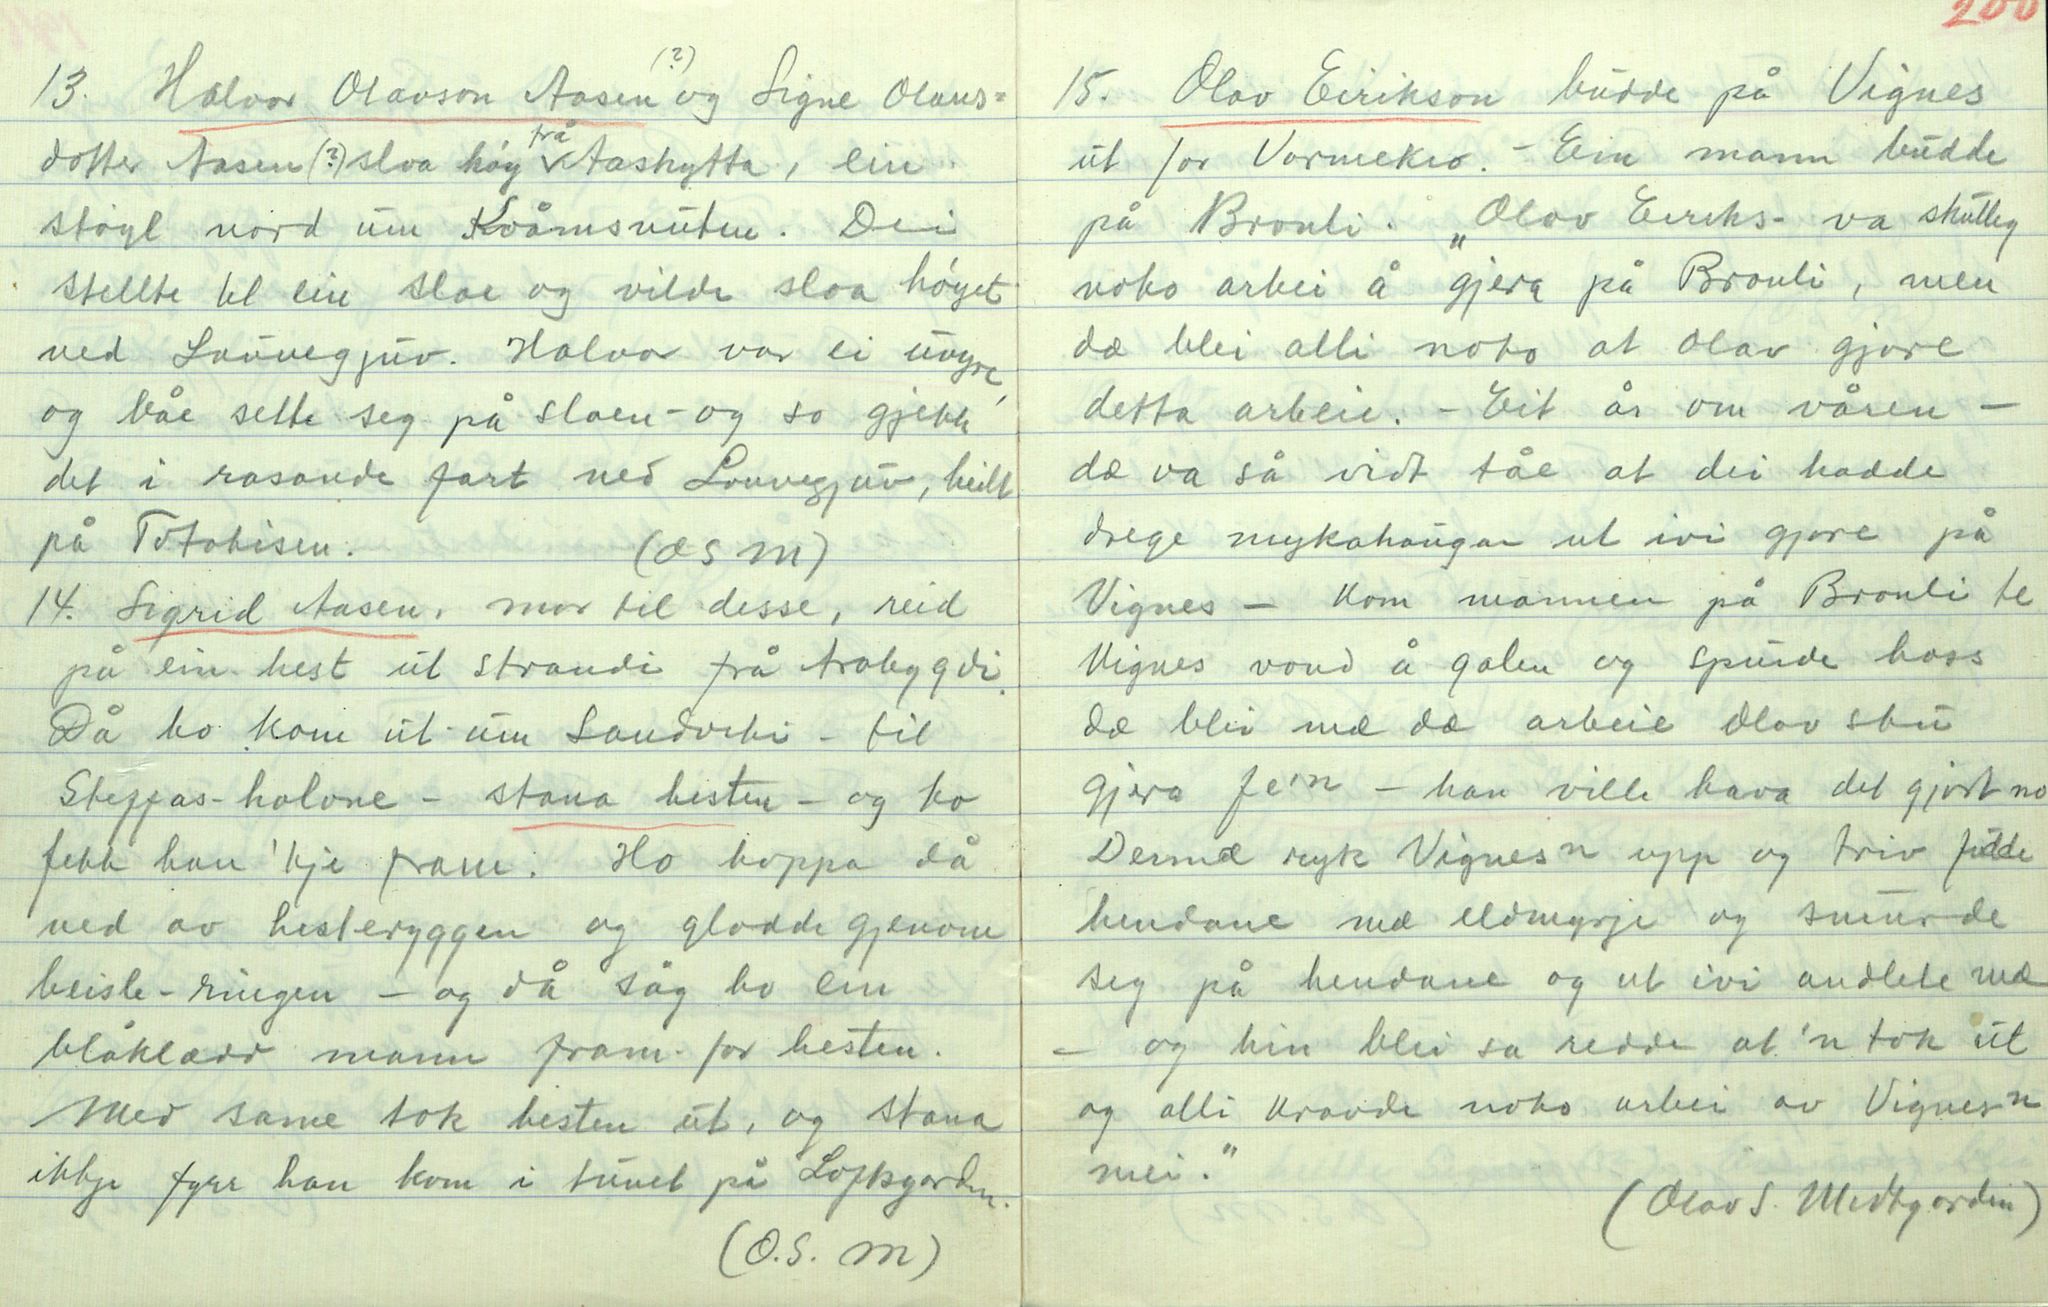 200
13. Halvor Olavson Aasen (?) og Signe Olavs-
dotter Aasen (?) sloa høy frå Aashytta, ein
støyl nord um Kvåmsnuten. Dei
stellte til ein sloe og vilde sloa høyet
ned Lauvegjuv. Halvor var ei uvyre,
og båe sette seg på sloen - og so gjekk
det i rasande fart ned Lauvegjuv, heilt
på Totakisen. (O S M)
14. Sigrid Aasen, mor til desse, reid
på ein hest ut strandi frå Arabygdi.
Då ho kom ut um Sandviki - til
Steffas-holone - stana hesten - og ho
fekk han 'kje fram. Ho hoppa då
ned av hesteryggen og glodde gjenom
beisle-ringen - og då såg ho ein
blåklædd mann fram for hesten.
Med same tok hesten ut, og stana
ikkje fyrr han kom i tunet på Loftsgarden.
(O.S. M)
15. Olav Eirikson budde på Vignes
ut for Varmekro. - Ein mann budde
på Brauli. "Olav Eiriks- va skuldig
noko arbei å gjera på Brauli, men
dæ blei alli noko at Olav gjore
detta arbeie. - Eit år om våren -
dæ va så vidt tåe at dei hadde
drege mykahaugan ut ivi gjore på
Vignes - kom mannen på Brauli te
Vignes vond å galen og spurde hoss
dæ blei mæ dæ arbeie Olav sku
gjera fe'n - han ville hava det gjort no
Dermæ reyk Vignesn upp og triv fudde
hendane mæ eldmyrje og smurde
seg på hendane og ut ivi andlete mæ
- og hin blei sa redde at 'n tok ut
og alli kravde noko arbei av Vignesn
mei."
(Olav S. Midtgarden)